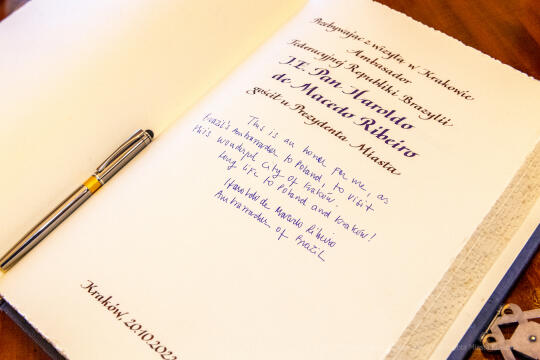 Przebywając z wizytą w Krakowie
Ambasador
Federacyjnej Republiki Brazylii
J.E. Pan Haroldo
de Macedo Ribeiro
gościł u Prezydenta Miasta
This is an honor for me, as
Brazil's Ambassador to Poland, to visit
this wonderful city of Kraków.
Long life to Poland and Kraków!
Haroldo de Macedo Ribeiro
Ambassador of Brazil
Kraków, 20.10.202